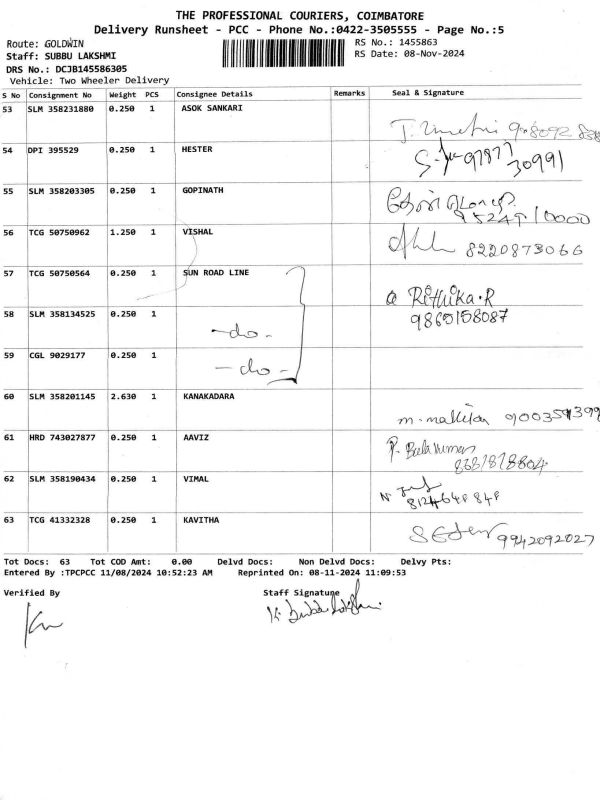 THE PROFESSIONAL COURIERS, COIMBATORE
Delivery Runsheet - PCC - Phone No.:0422-3505555 - Page No.:5
Route: GOLDWIN
RS No.: 1455863
Staff: SUBBU LAKSHMI
RS Date: 08-Nov-2024
DRS No.: DCJB145586305
Vehicle: Two Wheeler Delivery
S No Consignment No Weight PCS Consignee Details Remarks Seal & Signature
53 SLM 358231880 0.250 1 ASOK SANKARI
54 DPI 395529 0.250 1 HESTER
97877
30991
55 SLM 358203305 0.250 1 GOPINATH
56 TCG 50750962 1.250 1 VISHAL
8220873066
57 TCG 50750564 0.250 1 SUN ROAD LINE
Rithika.R
9865158087
58 SLM 358134525 0.250 1
-do-
59 CGL 9029177 0.250 1
-do-
60 SLM 358201145 2.630 1 KANAKADARA
61 HRD 743027877 0.250 1 AAVIZ
62 SLM 358190434 0.250 1 VIMAL
63 TCG 41332328 0.250 1 KAVITHA
9942092027
Tot Docs: 63 Tot COD Amt: 0.00 Delvd Docs: Non Delvd Docs: Delvy Pts:
Entered By :TPCPCC 11/08/2024 10:52:23 AM Reprinted On: 08-11-2024 11:09:53
Verified By Staff Signature